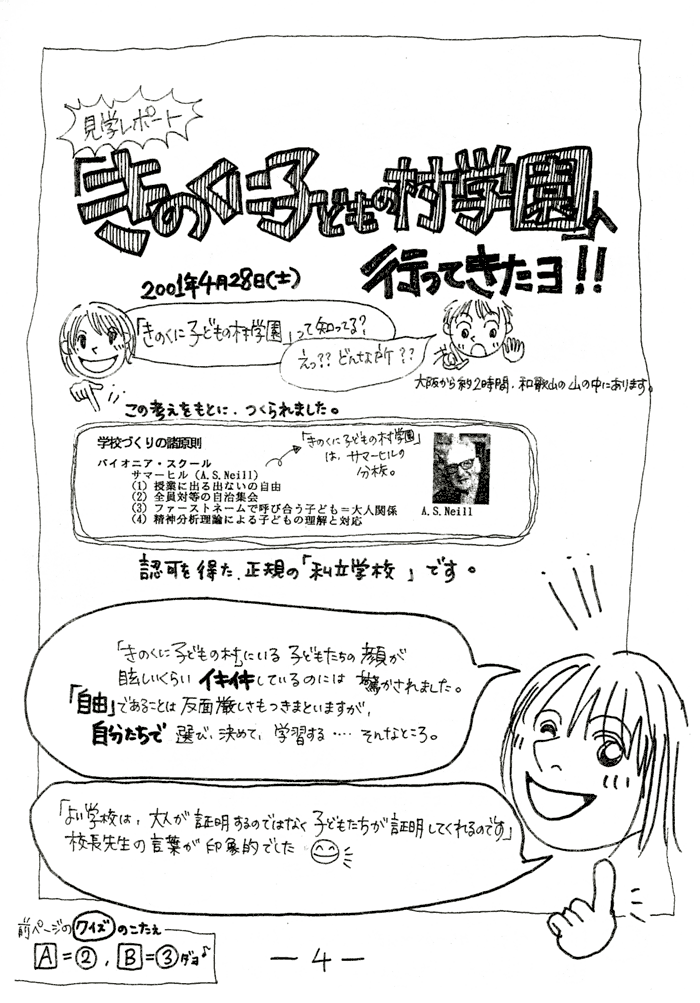 見学レポート
「きのくに子どもの村学園」へ
行ってきたヨ!!
2001年4月28日(土)
「きのくに子どもの村学園」って知ってる?
えっ?? どんな所??
大阪から約2時間、和歌山の山の中にあります。
この考えをもとに、つくられました。
学校づくりの諸原則
パイオニア・スクール
サマーヒル (A.S.Neill)
(1) 授業に出る出ないの自由
(2) 全員対等の自治集会
(3) ファーストネームで呼び合う子ども=大人関係
(4) 精神分析理論による子どもの理解と対応
「きのくに子どもの村学園」
は、サマーヒルの
分校。
A.S.Neill
認可を得た、正規の「私立学校」です。
「きのくに子どもの村」にいる 子どもたちの 顔が
眩しいくらい イキイキしているのには 驚かされました。
「自由」であることは 反面厳しさもつきまといますが、
自分たちで 選び、決めて、学習する‥‥ そんなところ。
「よい学校は、大人が証明するのではなく子どもたちが証明してくれるのです」
校長先生の言葉が印象的でした
前ページの クイズ のこたえ
A=②、B=③ダョ♪
― 4 ―